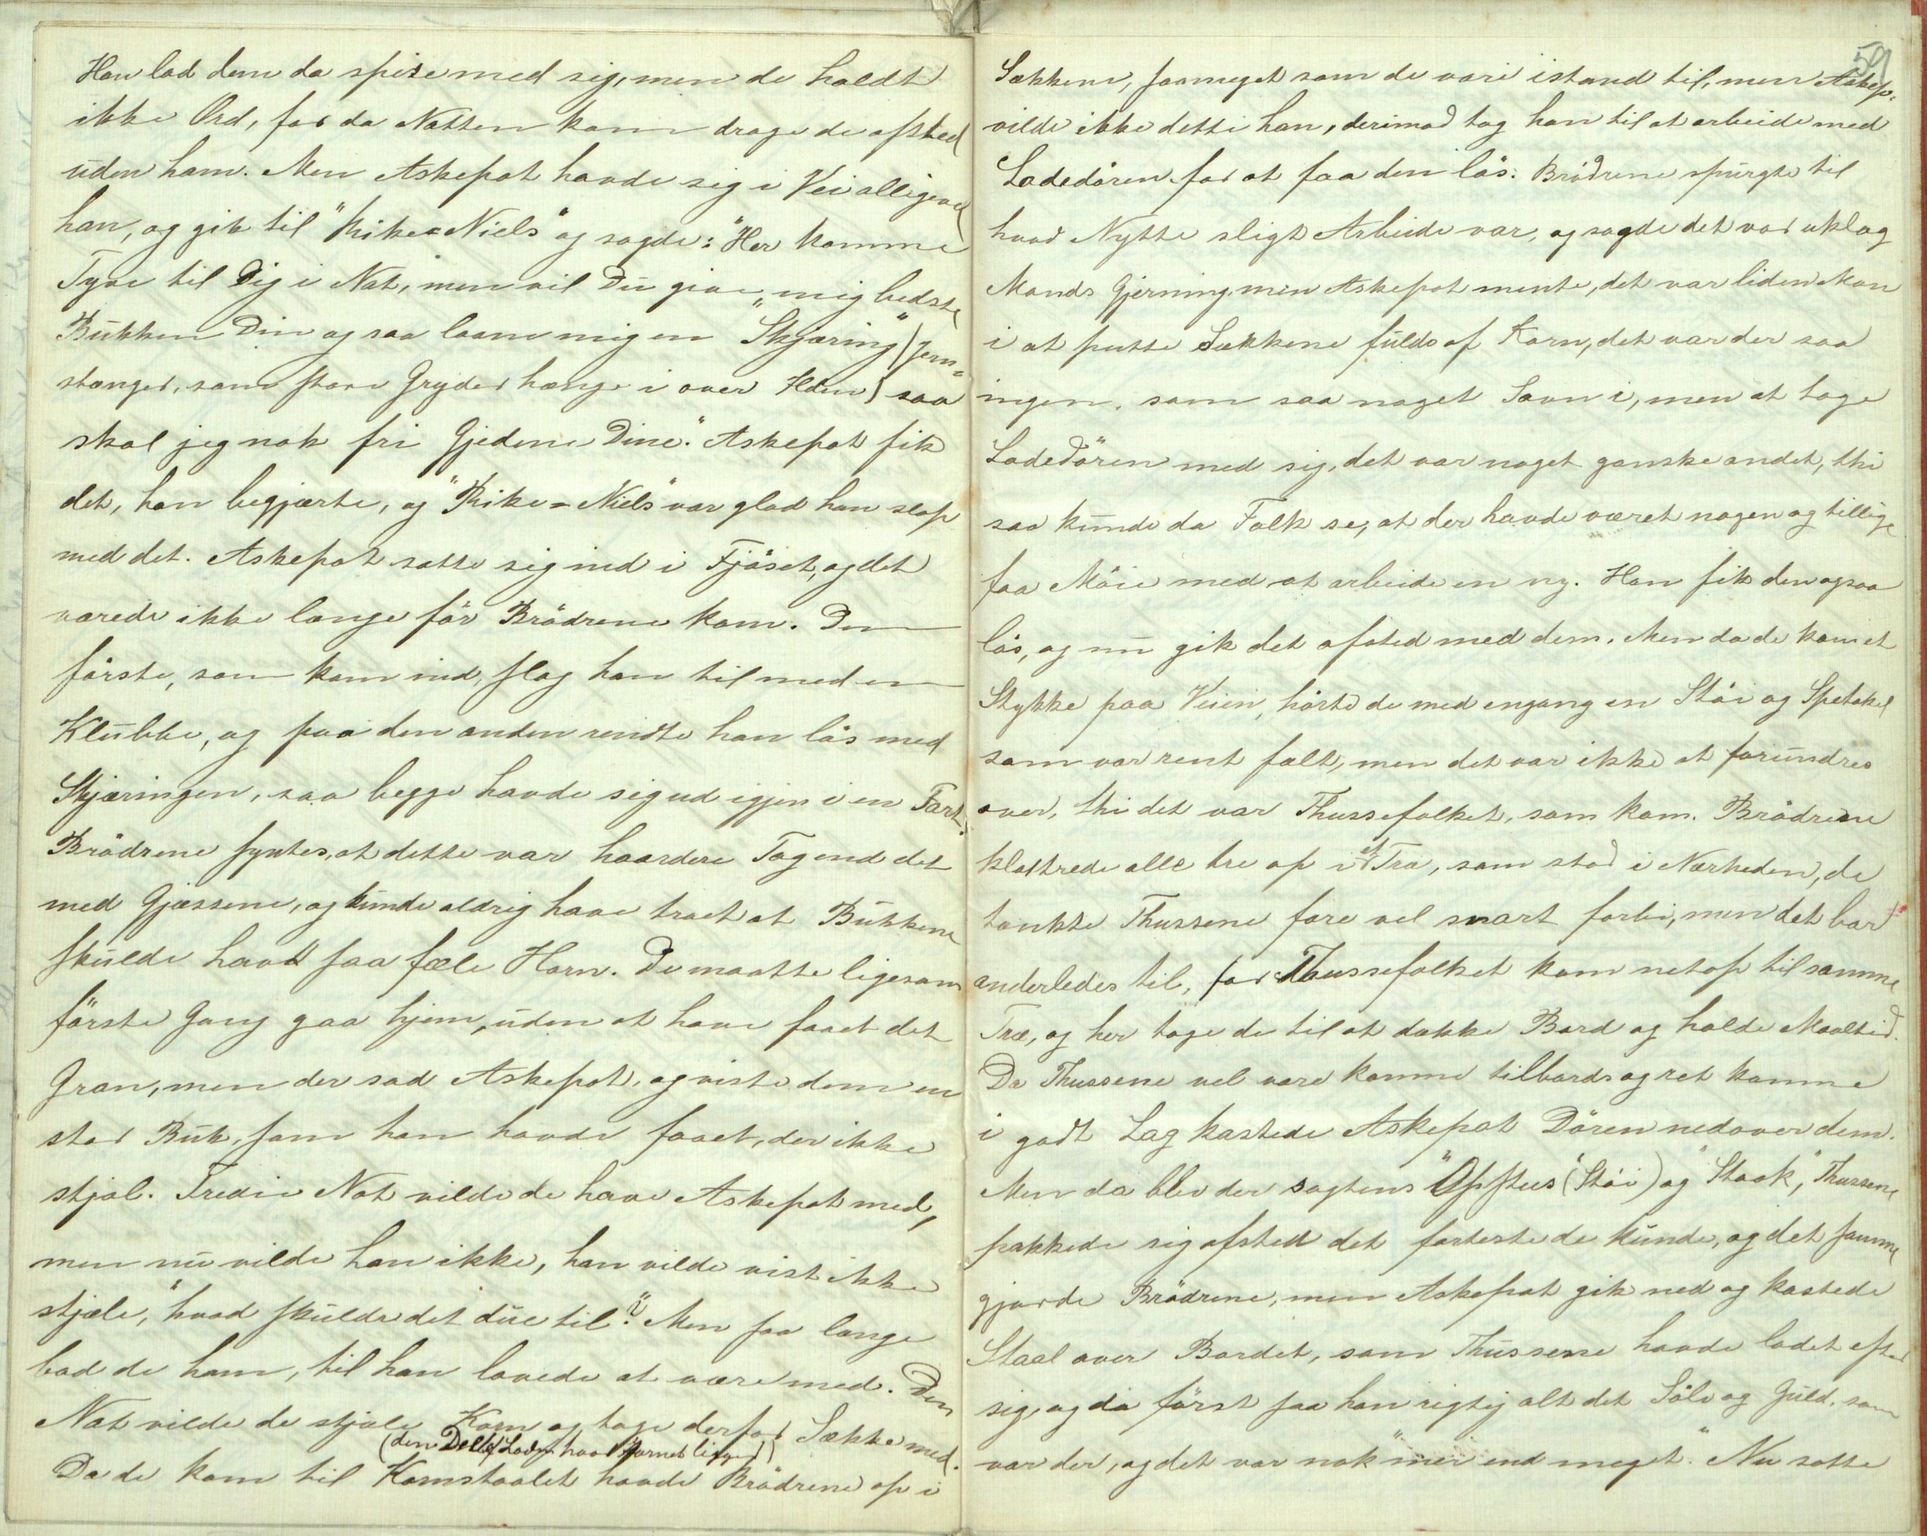 Han lod dem da spise med sig, men de holdt
ikke Ord, for da Natten kom droge de afsted
uden ham. Men Askepot havde sig i Vei alligevel
han, og gik til "Rike-Niels" og sagde: "Her komme
Tyve til Dig i Nat, men vil Du give mig bedste
Bukken Din og saa laane mig en "Skjæring" (Jern-
stanger, som store Gryder hænge i over Ilden) saa
skal jeg nok fri Gjedene Dine." Askepot fik
det, han begjærte, og "Rike-Niels" var glad han slap
med det. Askepot satte sig ind i Fjöset, og det
varede ikke længe för Brödrene kom. Den
förste, som kom ind, slog han til med en
Klubbe, og paa den anden rendte han lös med
Skjæringen, saa begge havde sig ud igjen i en Fart.
Brödrene syntes, at dette var haardere Tag end det
med Gjæssene, og kunde aldrig have troet at Bukkene
skulde havt saa fæle Horn. De maatte ligesom
förste Gang gaa hjem, uden at have faaet det
Gran, men der sad Askepot, og viste dem en
stor Buk, som han havde faaet, der ikke
stjal. Tredie Nat vilde de have Askepot med,
men nu vilde han ikke, han vilde vist ikke
stjæle, "hvad skulde det due til?" Men saa længe
bad de ham, til han lovede at være med. Den
Nat vilde de stjæle Korn og toge derfor Sække med.
(den Del af Laden hvor Kornet ligger)
Da de kom til Kornstaalet havde Brödrene op i
59
Sækkene, saameget som de vare istand til, men Askep.
vilde ikke dette han, derimod tog han til at arbeide med
Ladedören for at faa den lös. Brödrene spurgte til
hvad Nytte sligt Arbeide var, og sagde det var uklog
Mands Gjerning, men Askepot mente, det var liden Mon
i at putte Sækkene fulde af Korn, det var der saa
ingen, som saa noget Savn i, men at tage
Ladedören med sig, det var noget ganske andet, thi
saa kunde da Folk se, at der havde været nogen og tillige
faa Möie med at arbeide en ny. Han fik den ogsaa
lös, og nu gik det afsted med dem. Men da de kom et
Stykke paa Veien, hörte de med engang en Stöi og Spetakel
som var rent fælt, men det var ikke at forundres
over, thi det var Thussefolket, som kom. Brödrene
klattrede alle tre op i et Træ, som stod i Nærheden, de
tænkte Thussene fare vel snart forbi, men det bar
anderledes til, for Thussefolket kom netop til samme
Træ, og her toge de til at dække Bord og holde Maaltid.
Da Thussene vel vare komne tilbords og ret komne
i godt Lag kastede Askepot Dören nedover dem.
Men da blev der sagtens "Opstus" (Stöi) og "Staak", Thussene
pakkede sig afsted det forteste de kunde, og det samme
gjorde Brödrene, men Askepot gik ned og kastede
Staal over Bordet, som Thussene havde ladet efter
sig, og da först saa han rigtig alt det Sölv og Guld, som
var der, og det var nok "mer end meget." Nu satte